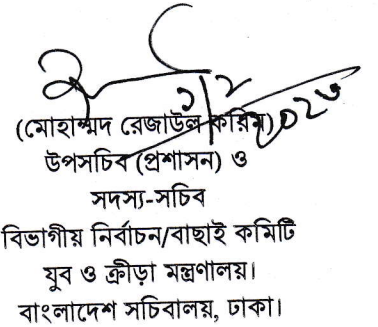 (মোহাম্মদ রেজাউল করিম)
উপসচিব (প্রশাসন) ও
সদস্য-সচিব
বিভাগীয় নির্বাচন/বাছাই কমিটি
যুব ও ক্রীড়া মন্ত্রণালয়।
বাংলাদেশ সচিবালয়, ঢাকা।